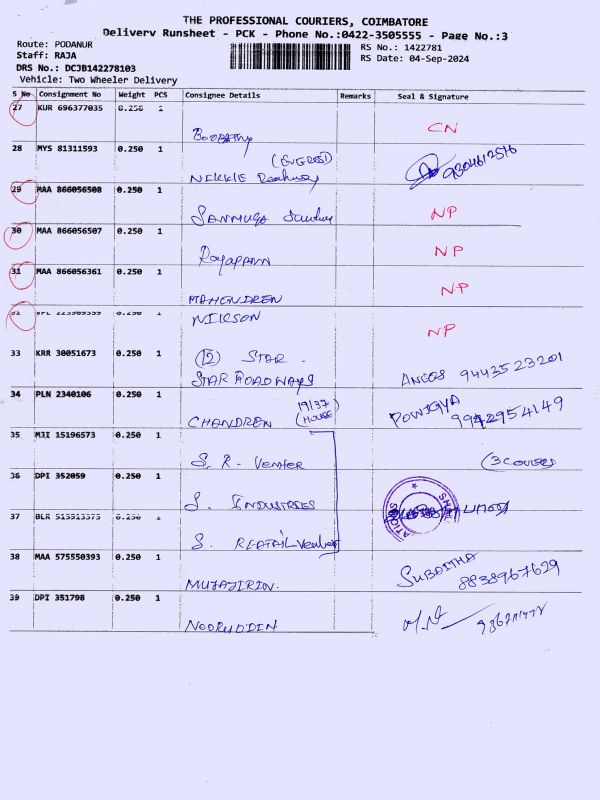 THE PROFESSIONAL COURIERS, COIMBATORE
Delivery Runsheet - PCK - Phone No.:0422-3505555 - Page No.:3
Route: PODANUR
RS No.: 1422781
Staff: RAJA
RS Date: 04-Sep-2024
DRS No.: DCJB142278103
Vehicle: Two Wheeler Delivery
S No Consignment No Weight PCS Consignee Details Remarks Seal & Signature
27 KUR 696377035 0.250 1
CN
28 MYS 81311593 0.250 1
NIKKIE
9304612516
29 MAA 866056508 0.250 1
SANMUGA
NP
30 MAA 866056507 0.250 1
NP
31 MAA 866056361 0.250 1
MAHENDREN
NP
32 0.250 1 NIKSON
NP
33 KRR 30051673 0.250 1 (12) STAR
STAR ROADWAYS ANCOS 9443523201
34 PLN 2340106 0.250 1
CHANDREN 19/37 (HOUSE) 9942954149
35 MJI 15196573 0.250 1
S. R. (3 COVERS)
36 DPI 352059 0.250 1
S. INDUSTRIES
37 BLR 515513575 0.250 1
S.
38 MAA 575550393 0.250 1
MUJAJIRIN. SUBAITHA 8838967629
39 DPI 351798 0.250 1
NOORUDDIN